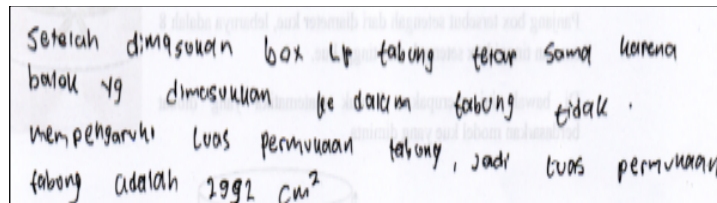 Setelah dimasukan box LP tabung tetap sama karena
balok yg dimasukkan ke dalam tabung tidak.
mempengaruhi luas permukaan tabung, jadi luas permukaan
tabung adalah 2992 cm²